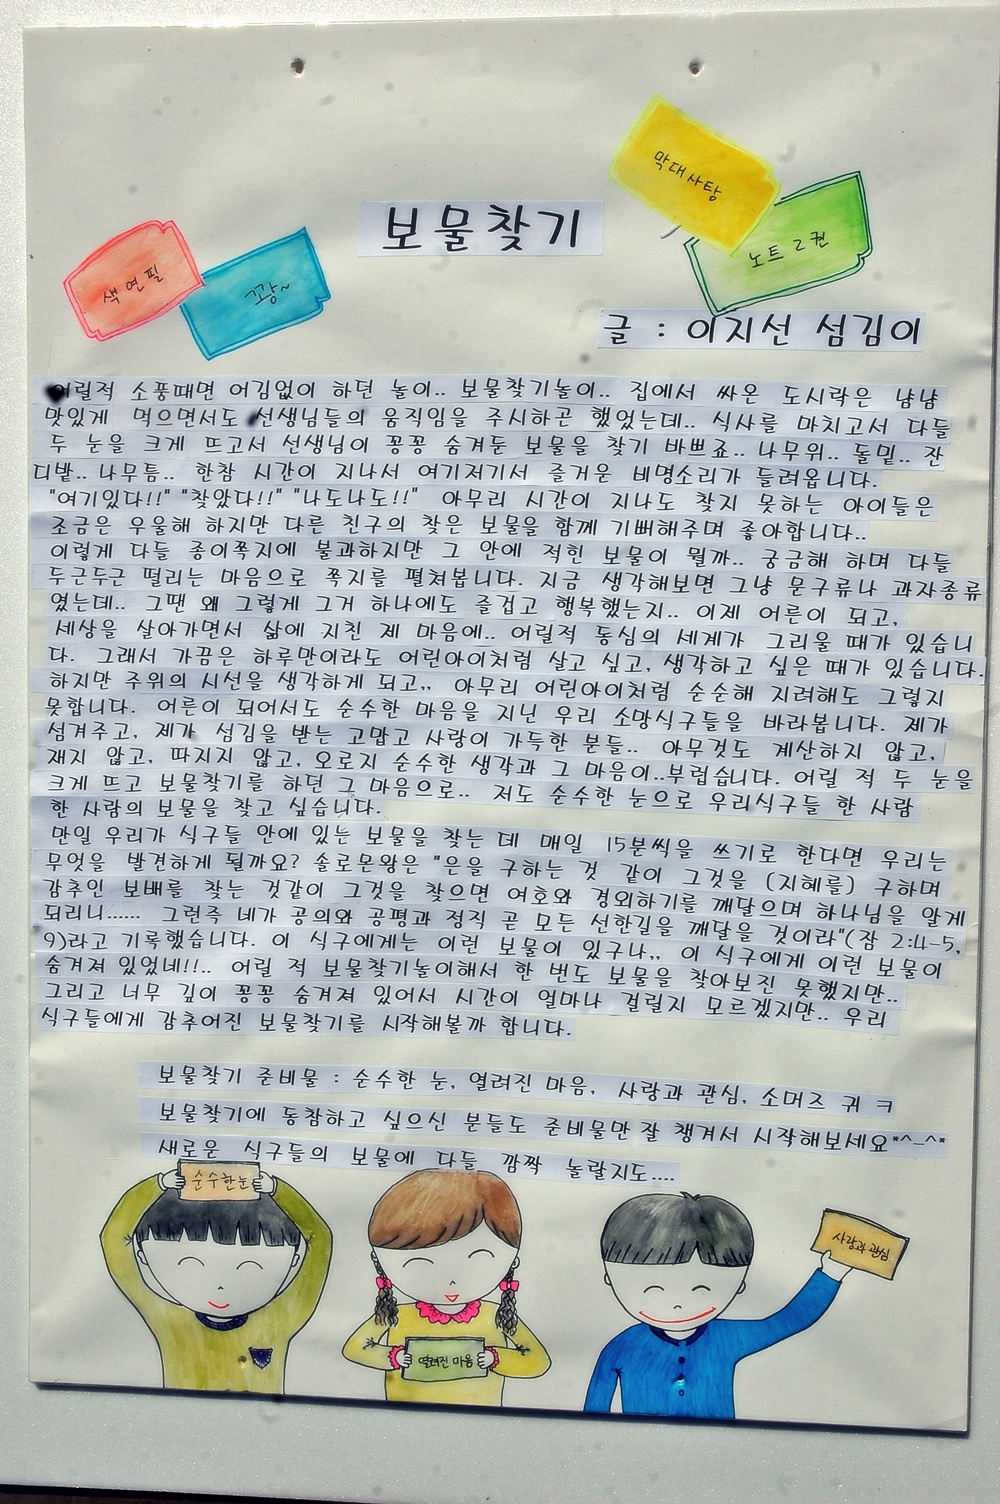 막대사탕
보물찾기
노트 2권
색연필
꽝~
글 : 이지선 섬김이
어릴적 소풍때면 어김없이 하던 놀이.. 보물찾기놀이.. 집에서 싸온 도시락은 냠냠
맛있게 먹으면서도 선생님들의 움직임을 주시하곤 했었는데.. 식사를 마치고서 다들
두 눈을 크게 뜨고서 선생님이 꽁꽁 숨겨둔 보물을 찾기 바쁘죠.. 나무위.. 돌밑.. 잔
디밭.. 나무틈.. 한참 시간이 지나서 여기저기서 즐거운 비명소리가 들려옵니다.
"여기있다!!" "찾았다!!" "나도나도!!" 아무리 시간이 지나도 찾지 못하는 아이들은
조금은 우울해 하지만 다른 친구의 찾은 보물을 함께 기뻐해주며 좋아합니다..
이렇게 다들 종이쪽지에 불과하지만 그 안에 적힌 보물이 뭘까.. 궁금해 하며 다들
두근두근 떨리는 마음으로 쪽지를 펼쳐봅니다. 지금 생각해보면 그냥 문구류나 과자종류
였는데.. 그땐 왜 그렇게 그거 하나에도 즐겁고 행복했는지.. 이제 어른이 되고,
세상을 살아가면서 삶에 지친 제 마음에.. 어릴적 동심의 세계가 그리울 때가 있습니
다. 그래서 가끔은 하루만이라도 어린아이처럼 살고 싶고, 생각하고 싶은 때가 있습니다.
하지만 주위의 시선을 생각하게 되고,, 아무리 어린아이처럼 순순해 지려해도 그렇지
못합니다. 어른이 되어서도 순수한 마음을 지닌 우리 소망식구들을 바라봅니다. 제가
섬겨주고, 제가 섬김을 받는 고맙고 사랑이 가득한 분들.. 아무것도 계산하지 않고,
재지 않고, 따지지 않고, 오로지 순수한 생각과 그 마음이..부럽습니다. 어릴 적 두 눈을
크게 뜨고 보물찾기를 하던 그 마음으로.. 저도 순수한 눈으로 우리식구들 한 사람
한 사람의 보물을 찾고 싶습니다.
만일 우리가 식구들 안에 있는 보물을 찾는 데 매일 15분씩을 쓰기로 한다면 우리는
무엇을 발견하게 될까요? 솔로몬왕은 "은을 구하는 것 같이 그것을 (지혜를) 구하며
감추인 보배를 찾는 것같이 그것을 찾으면 여호와 경외하기를 깨달으며 하나님을 알게
되리니...... 그런즉 네가 공의와 공평과 정직 곧 모든 선한길을 깨달을 것이라"(잠 2:4-5,
9)라고 기록했습니다. 이 식구에게는 이런 보물이 있구나,, 이 식구에게 이런 보물이
숨겨져 있었네!!.. 어릴 적 보물찾기놀이해서 한 번도 보물을 찾아보진 못했지만..
그리고 너무 깊이 꽁꽁 숨겨져 있어서 시간이 얼마나 걸릴지 모르겠지만.. 우리
식구들에게 감추어진 보물찾기를 시작해볼까 합니다.
보물찾기 준비물 : 순수한 눈, 열려진 마음, 사랑과 관심, 소머즈 귀 ㅋ
보물찾기에 동참하고 싶으신 분들도 준비물만 잘 챙겨서 시작해보세요*^_^*
새로운 식구들의 보물에 다들 깜짝 놀랄지도....
순수한눈
사랑과 관심
열려진 마음